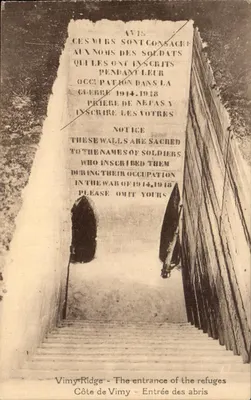 AVIS
CES MURS SONT CONSACRÉS
AUX NOMS DES SOLDATS
QUI LES ONT INSCRITS
PENDANT LEUR
OCCUPATION DANS LA
GUERRE 1914.1918
PRIÈRE DE NE PAS Y
INSCRIRE LES VOTRES
NOTICE
THESE WALLS ARE SACRED
TO THE NAMES OF SOLDIERS
WHO INSCRIBED THEM
DURING THEIR OCCUPATION
IN THE WAR OF 1914.1918
PLEASE OMIT YOURS
Vimy-Ridge - The entrance of the refuges
Côte de Vimy - Entrée des abris